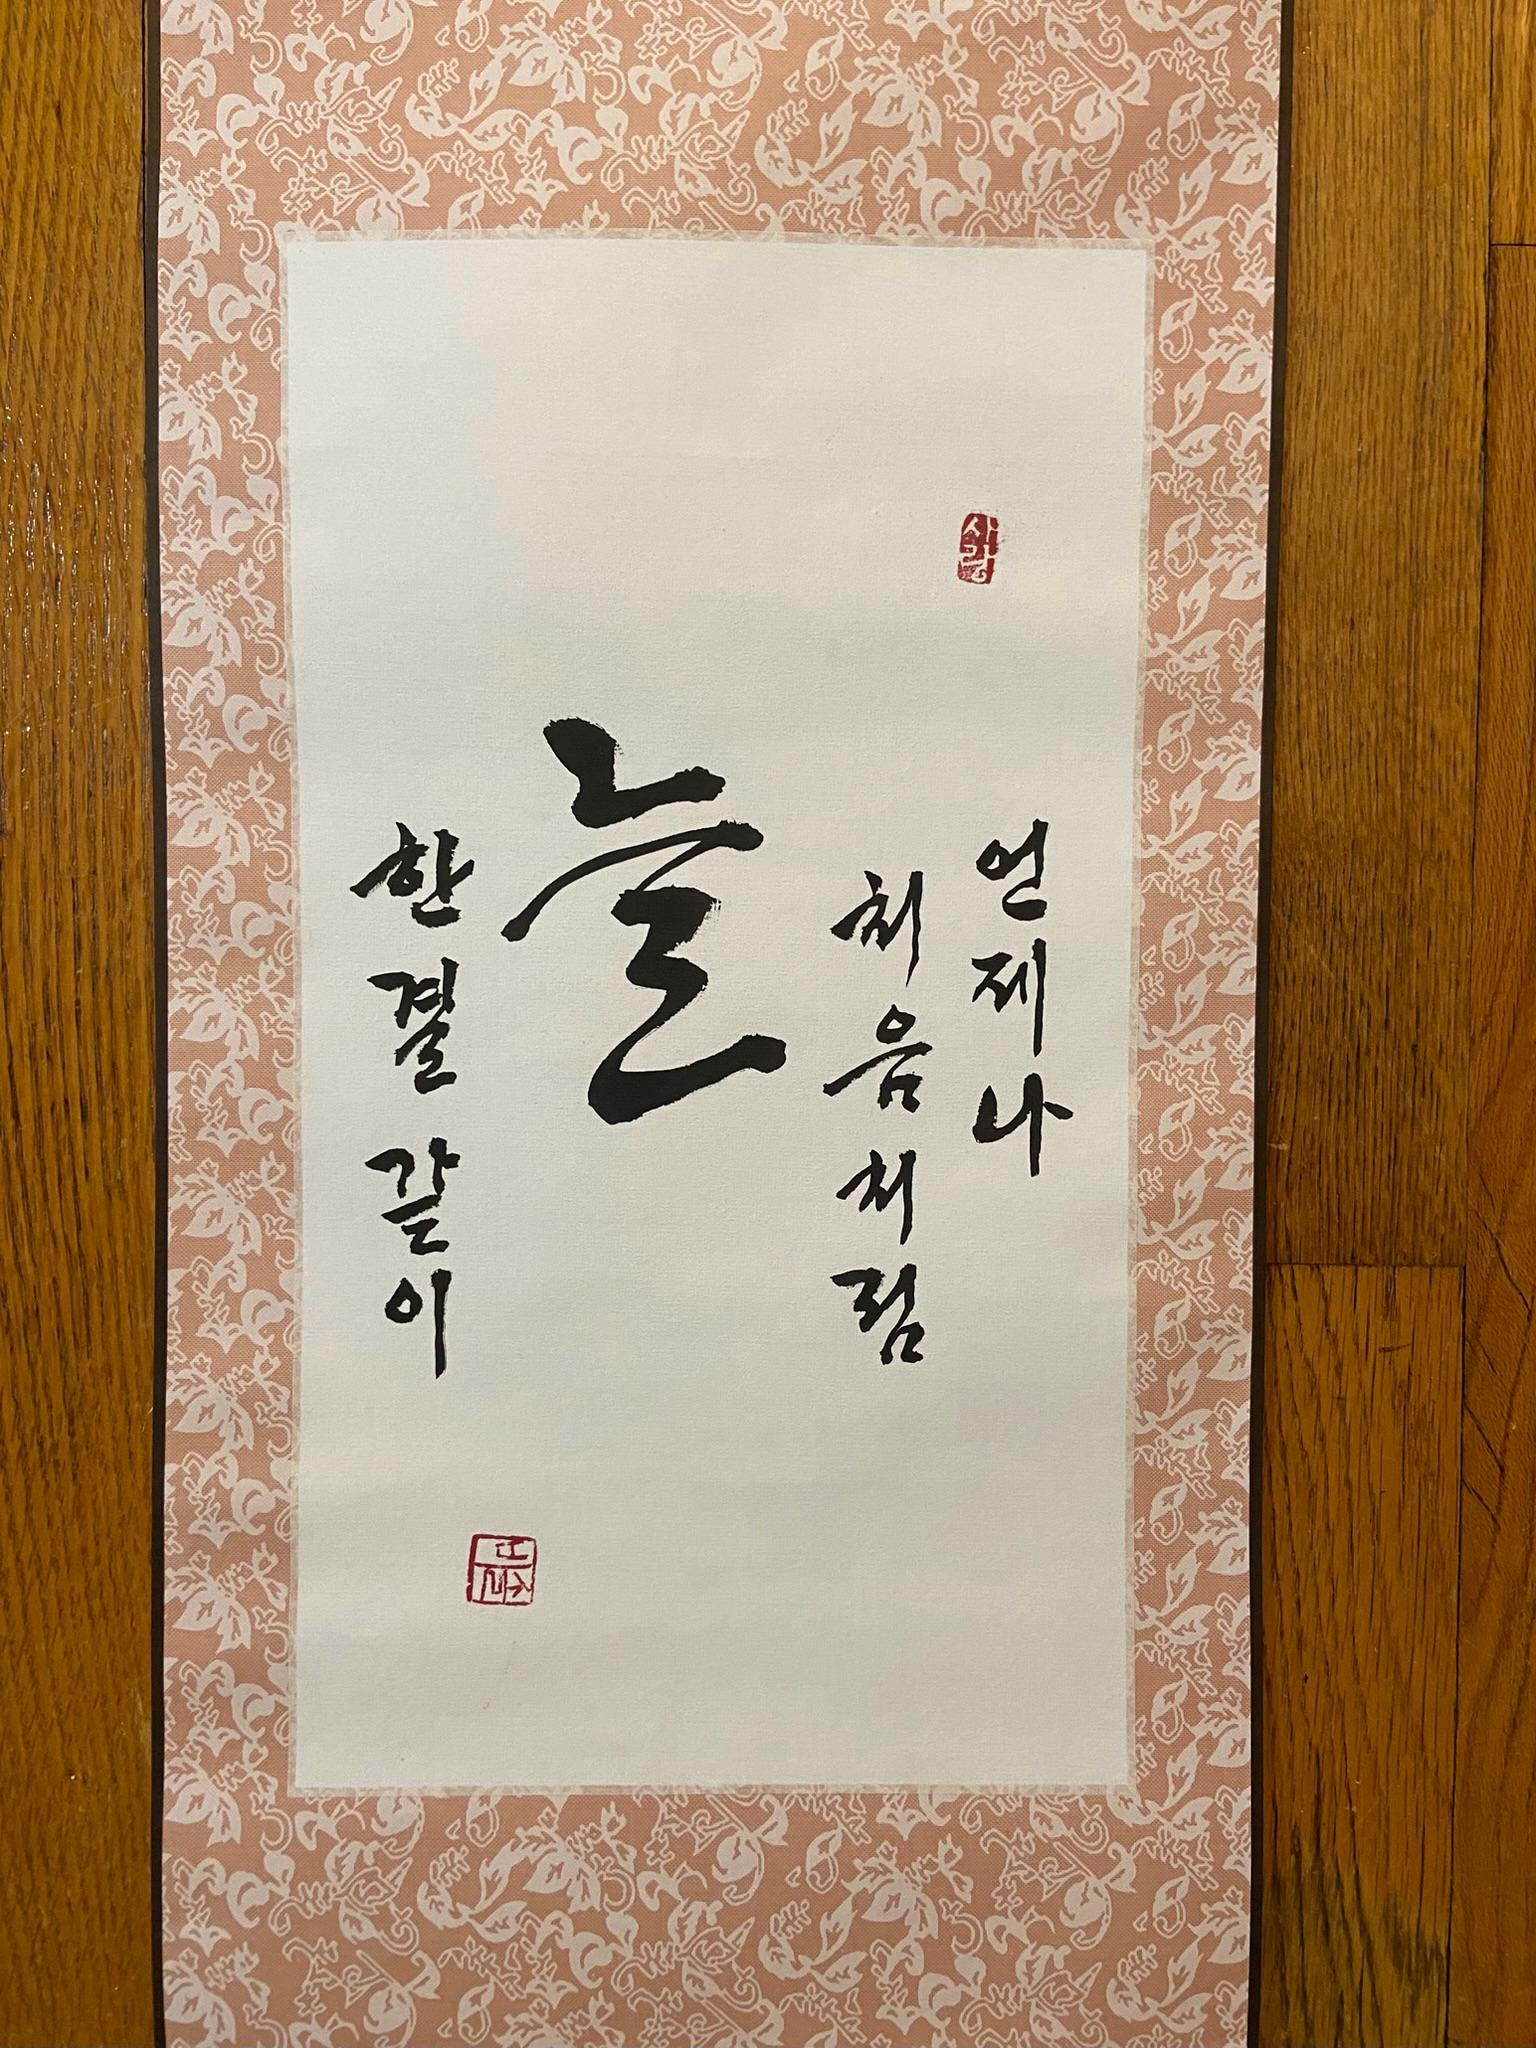 언제나
처음처럼
늘
한결같이
사랑